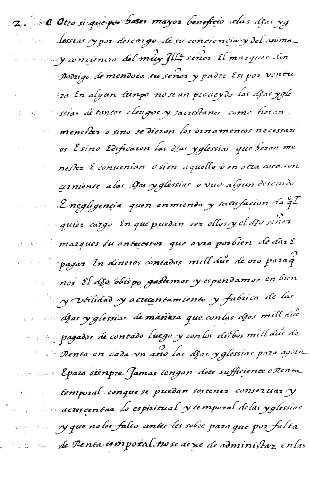 2. Otro si que por hazer mayor benefiçio a las dhas yg
lessias y por descargo de su conçiençia y del anima
y conçiençia del muy Illᵉ señor El marques don
Rodrigo de mendoca su señor y padre En por ventu
ra En algun tiempo no sean proueydo las dhas ygle
ssias de tantos clerigos y sacristanes como heran
menester o sino se dieron los ornamentos necessari
os E sino Edificaron las dhas yglessias que heran me
nester E convenian o si en aquello o en otra cosa con
çerniente a las dhas yglessias o vuo algun descuido
E negligençia que en enmienda y satisfaçion de ql
quier cargo En que puedan ser ellos y el dho señor
marques su anteçesor que avra por bien de dar E
pagar En dineros contados mill duᵒˢ de oro para q
nos El dho obispo gastemos y espendamos en bien
y vtilidad y acreçentamiento y fabrica de las
dhas yglessias de manera que con los dhos mill duᵒˢ
pagados de contado luego y con los dichos mill duᵒˢ de
Renta en cada vn año las dhas yglessias para agora
E para sienpre Jamas tengan dote suffiçiente E Renta
temporal con que se puedan sostener conseruar y
acreçentar lo espiritual y temporal de las yglessias
y que no les falte antes les sobre para que por falta
de Renta temporal no se dexe de administrar en las